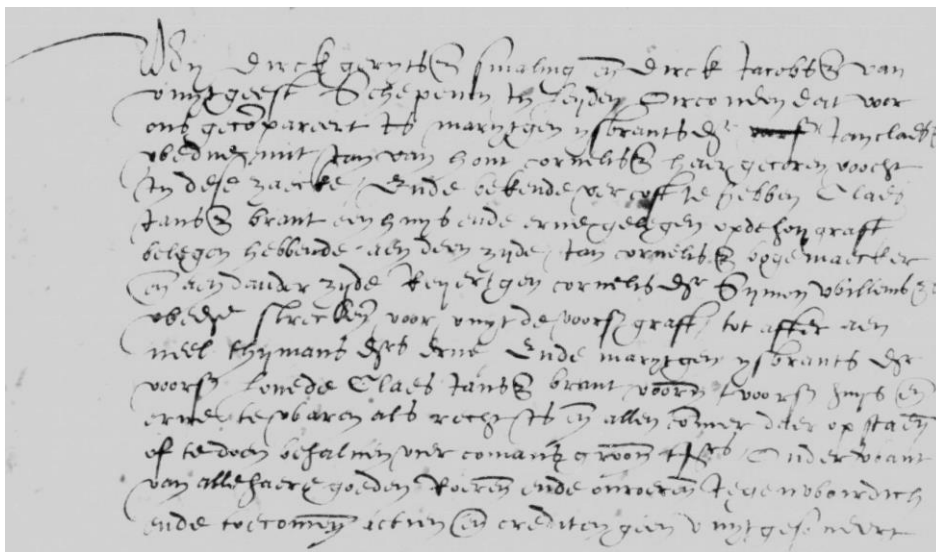 Wij Dirck gerytsz smaling en Dirck Jacobsz van
Uuytgeest Schepenen in leyden Oirconden dat voor
ons gecopareert is marijtgen ysbrants dr Jan claesz
wedue mit Jan van hout cornelisz haer gecoren voocht
in dese zaecke Ende bekende vercoft te hebben Claes
Jansz brant een huys ende erve gelegen op de hoygraft
belegen hebbende aen deen zyde Jan cornelisz
en aen dander zyde Reijertgen cornelis dr Symon willemsz
wedue streckende voor uuyt de voorsz graft tot after aen
neel thymans drs erve Ende marijtgen ysbrants dr
voorsz lovede Claes Jansz brant voorn tvoorsz huys en
erve te waren als recht is en allen commer daer op staen
of te doen behalven vier
van alle haere goeden Roeren ende onroeren Jegenwoirdich
ende toecomen actien en crediten geen uuytgesondert